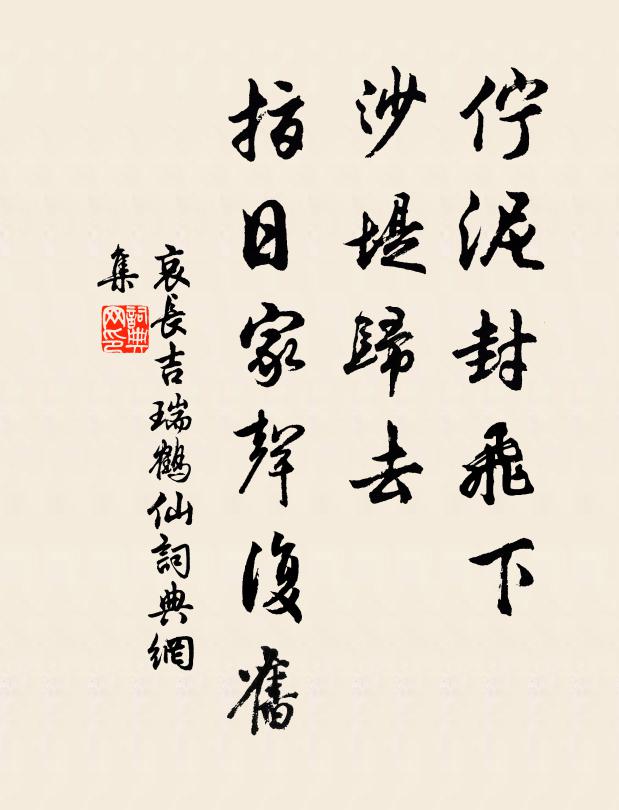 佇泥封飛下
沙堤歸去
指日家聲復舊
哀長吉瑞鶴仙詞典網
集
詞典網印